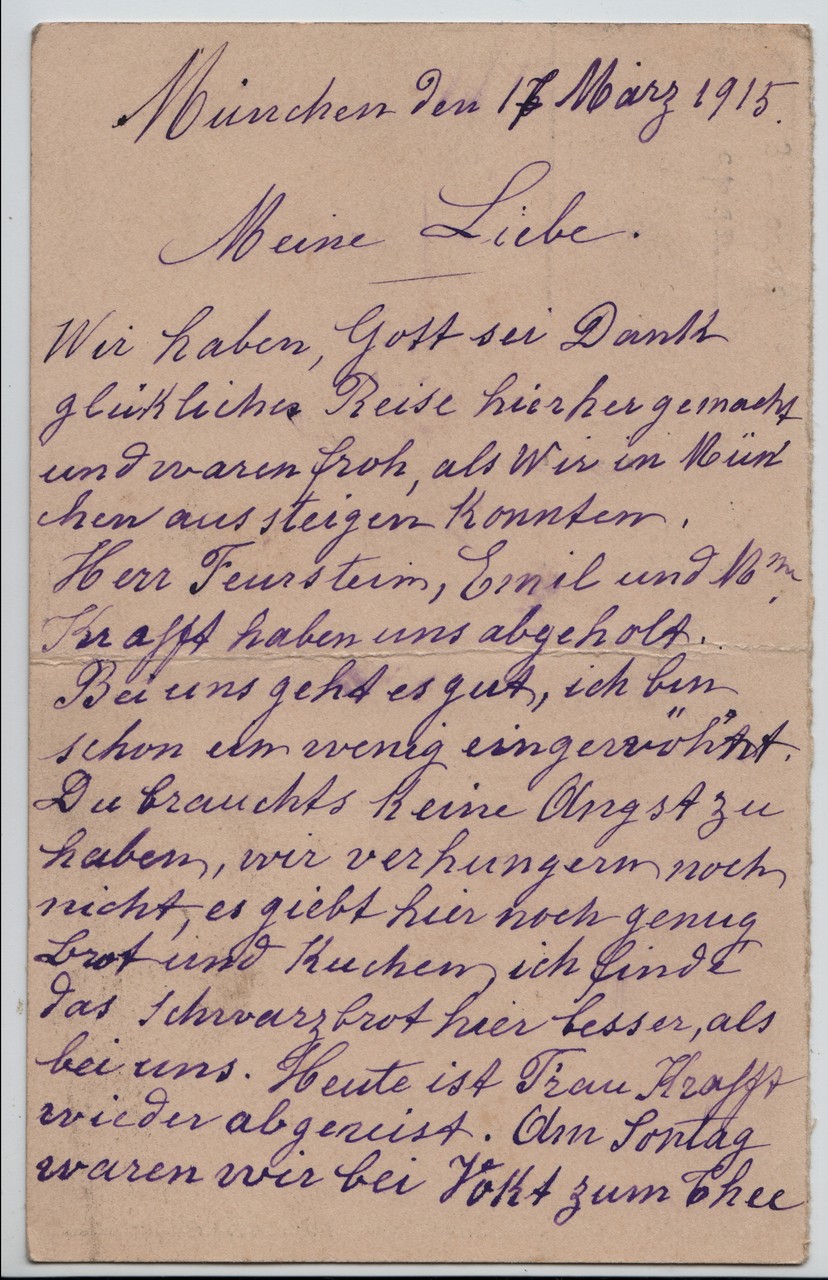 München den 17 März 1915.
Meine Liebe.
Wir haben, Gott sei Dank
glükliche Reise hierher gemacht
und waren froh, als Wir in Mün
chen aussteigen Konnten.
Herr Feurstein, Emil und Mme
Krafft haben uns abgeholt.
Bei uns geht es gut, ich bin
schon ein wenig eingewöhnt.
Du brauchts Keine Angst zu
haben, wir verhungern noch
nicht, es giebt hier noch genug
Brot und Kuchen, ich finde
das Schwarzbrot hier besser, als
bei uns. Heute ist Frau Krafft
wieder abgereist. Am Sontag
waren wir bei Vokt zum Thee